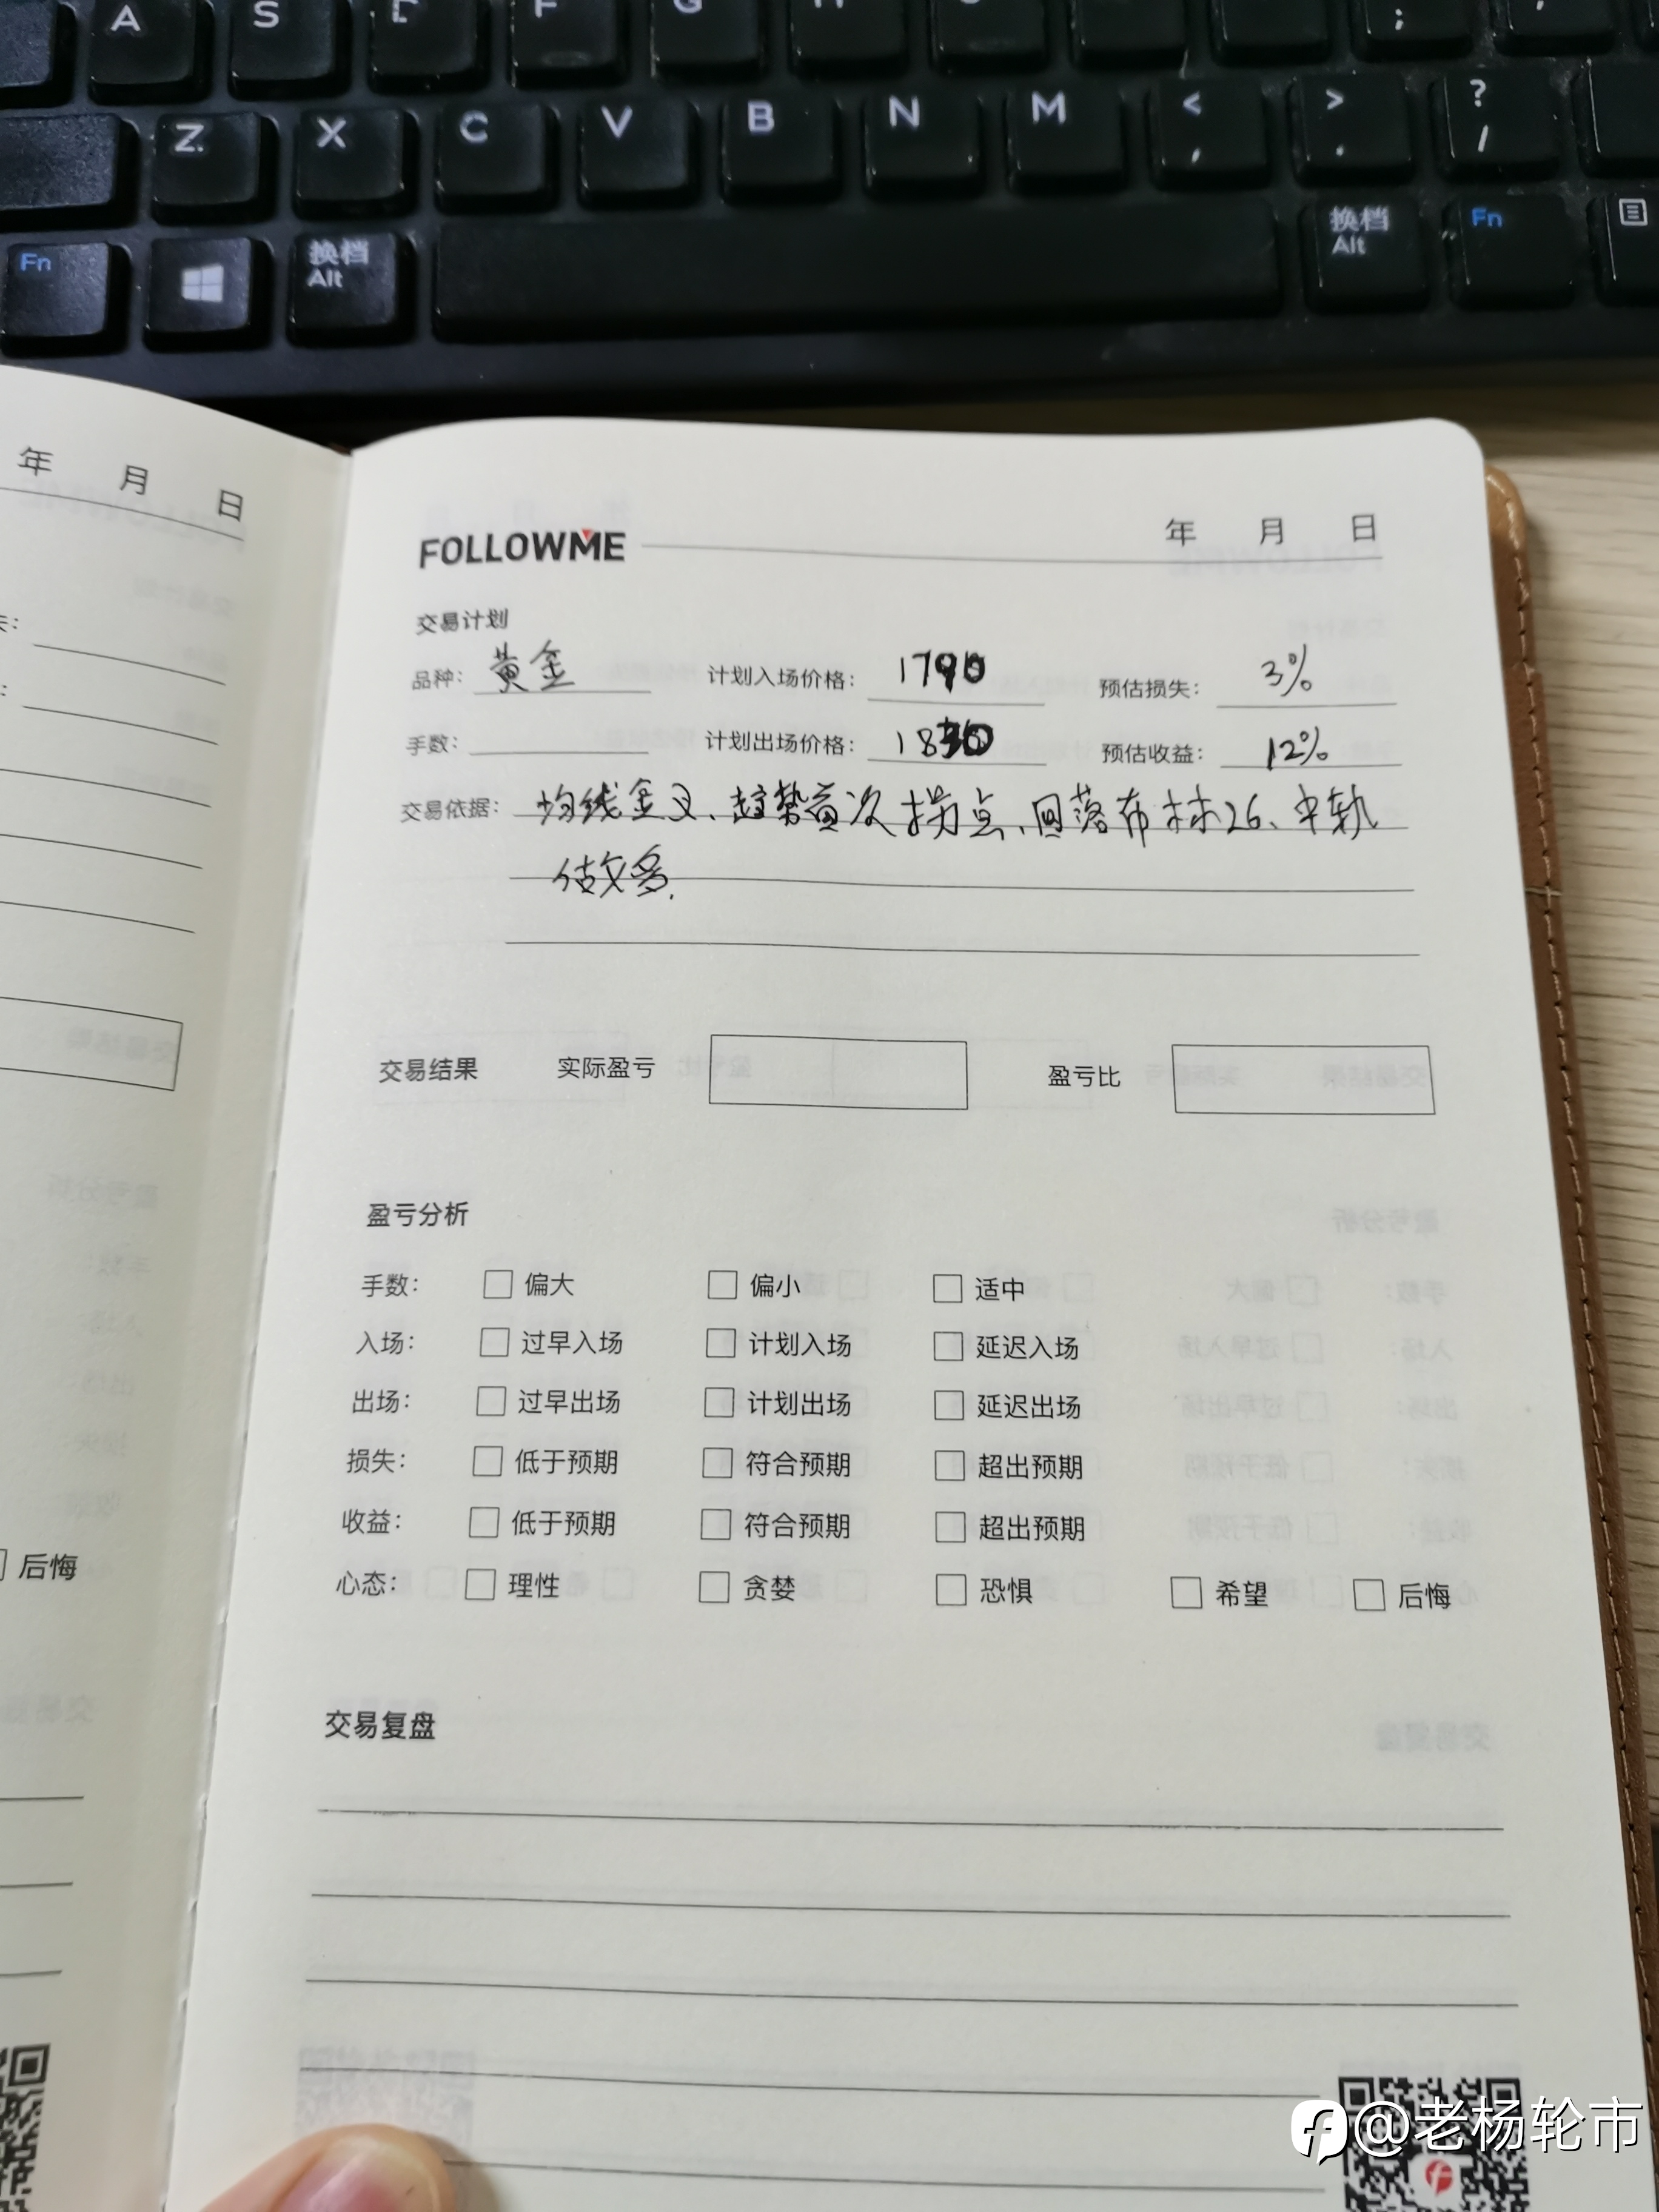 A S F G
Z X C V B N M < , > . ? /
Fn 换档 Alt 换档 Alt Fn
年 月 日
FOLLOWME 年 月 日
交易计划
品种: 黄金 计划入场价格: 1790 预估损失: 3%
手数: 计划出场价格: 1830 预估收益: 12%
交易依据: 均线金叉、趋势首次拐点、回落布林26、中轨
做多.
交易结果 实际盈亏 盈亏比
盈亏分析
手数: 偏大 偏小 适中
入场: 过早入场 计划入场 延迟入场
出场: 过早出场 计划出场 延迟出场
损失: 低于预期 符合预期 超出预期
收益: 低于预期 符合预期 超出预期
后悔
心态: 理性 贪婪 恐惧 希望 后悔
交易复盘
@老杨轮市